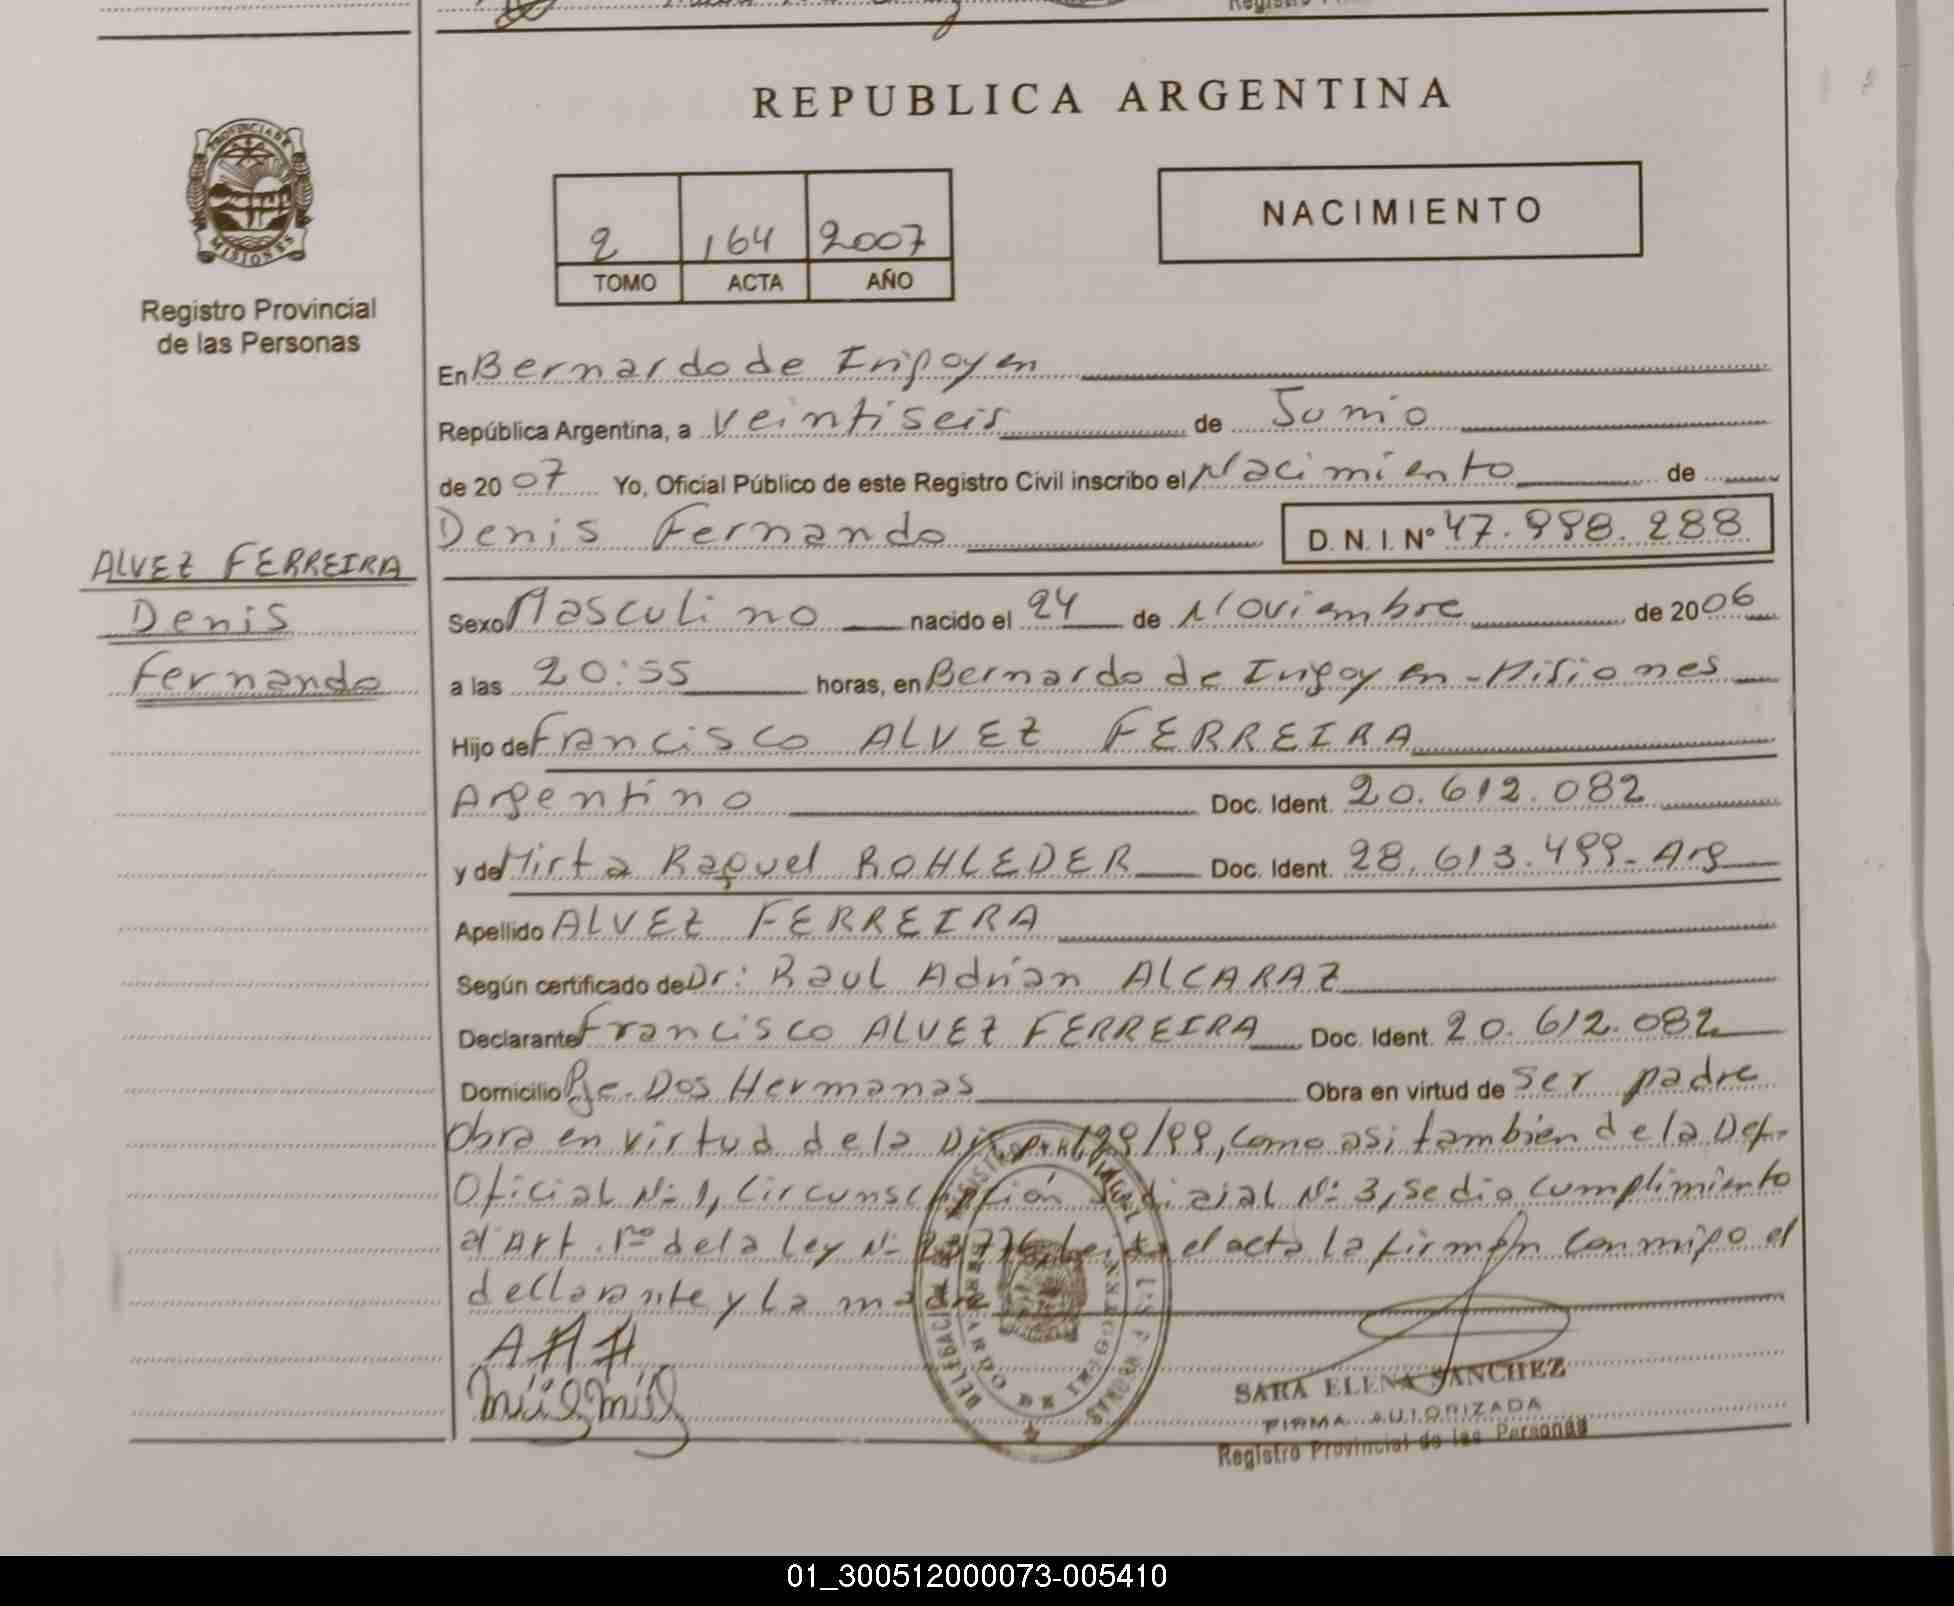 REPUBLICA ARGENTINA
PROVINCIA DE
MISIONES
Registro Provincial
de las Personas
2 164 2007
TOMO ACTA AÑO
NACIMIENTO
En Bernardo de Irigoyen
República Argentina, a veintiseis de Junio
de 2007 Yo, Oficial Público de este Registro Civil inscribo el Nacimiento de
Denis Fernando D. N. I. Nº 47.998.288
ALVEZ FERREIRA
Denis
Fernando
Sexo Masculino nacido el 24 de Noviembre de 2006
a las 20:55 horas, en Bernardo de Irigoyen - Misiones
Hijo de Francisco ALVEZ FERREIRA
Argentino Doc. Ident. 20.612.082
y de Mirta Raquel ROHLEDER Doc. Ident. 28.613.499- Arg
Apellido ALVEZ FERREIRA
Según certificado de Dr: Raul Adrian ALCARAZ
Declarante Francisco ALVEZ FERREIRA Doc. Ident. 20.612.082
Domicilio Pje. Dos Hermanas Obra en virtud de ser padre
Obra en virtud de la /99, como asi tambien de la Def.
Oficial Nº 1, Circunscripción Judicial Nº 3, se dio cumplimiento
al Art. 1º de la Ley Nº el acta la firman conmigo el
declarante y la madre
SARA ELENA SANCHEZ
FIRMA AUTORIZADA
Registro Provincial de las Personas
01_300512000073-005410